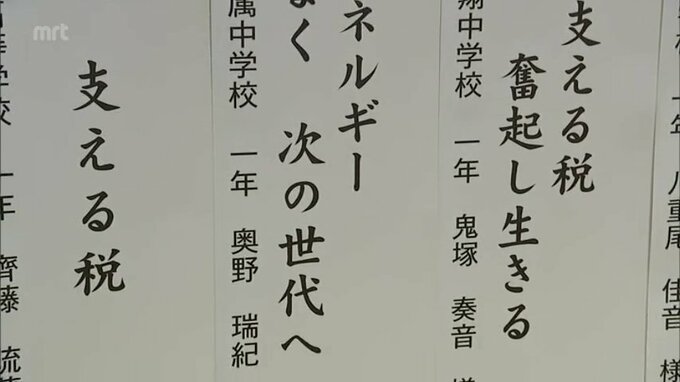 mrt
一年 八重尾 佳音 様
支える税
奮起し生きる
翔中学校 一年 鬼塚 奏音 様
ネルギー
なく 次の世代へ
属中学校 一年 奥野 瑞紀
支える税
学校 一年 齊藤